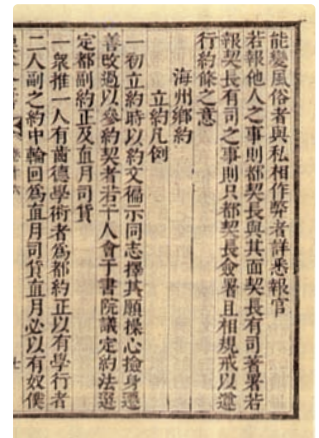 能變風俗者與私相作弊者詳悉報官
若報他人之事則都契長與其面契長有司著署若
報契長有司之事則只都契長僉署且相規戒以遵
行約條之意
海州鄉約
立約凡例
一初立約時以約文徧示同志擇其願操心撿身遷
善改過以參約契者若干人會于書院議定約法選
定都副約正及直月司貨
一衆推一人有齒德學術者爲都約正以有學行者
二人副之約中輪回爲直月司貨直月必以有奴僕
七